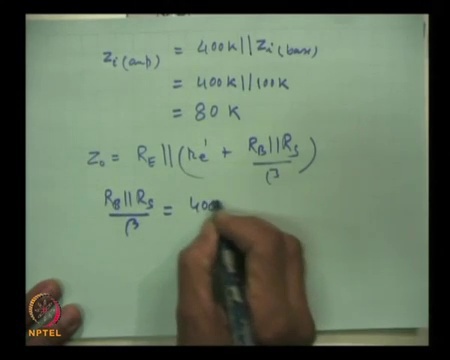 Zi(amp) = 400K || Zi(base)
= 400K || 100K
= 80 K
Zo = RE || (re' + RB || RS / β)
RB || RS / β = 400
NPTEL